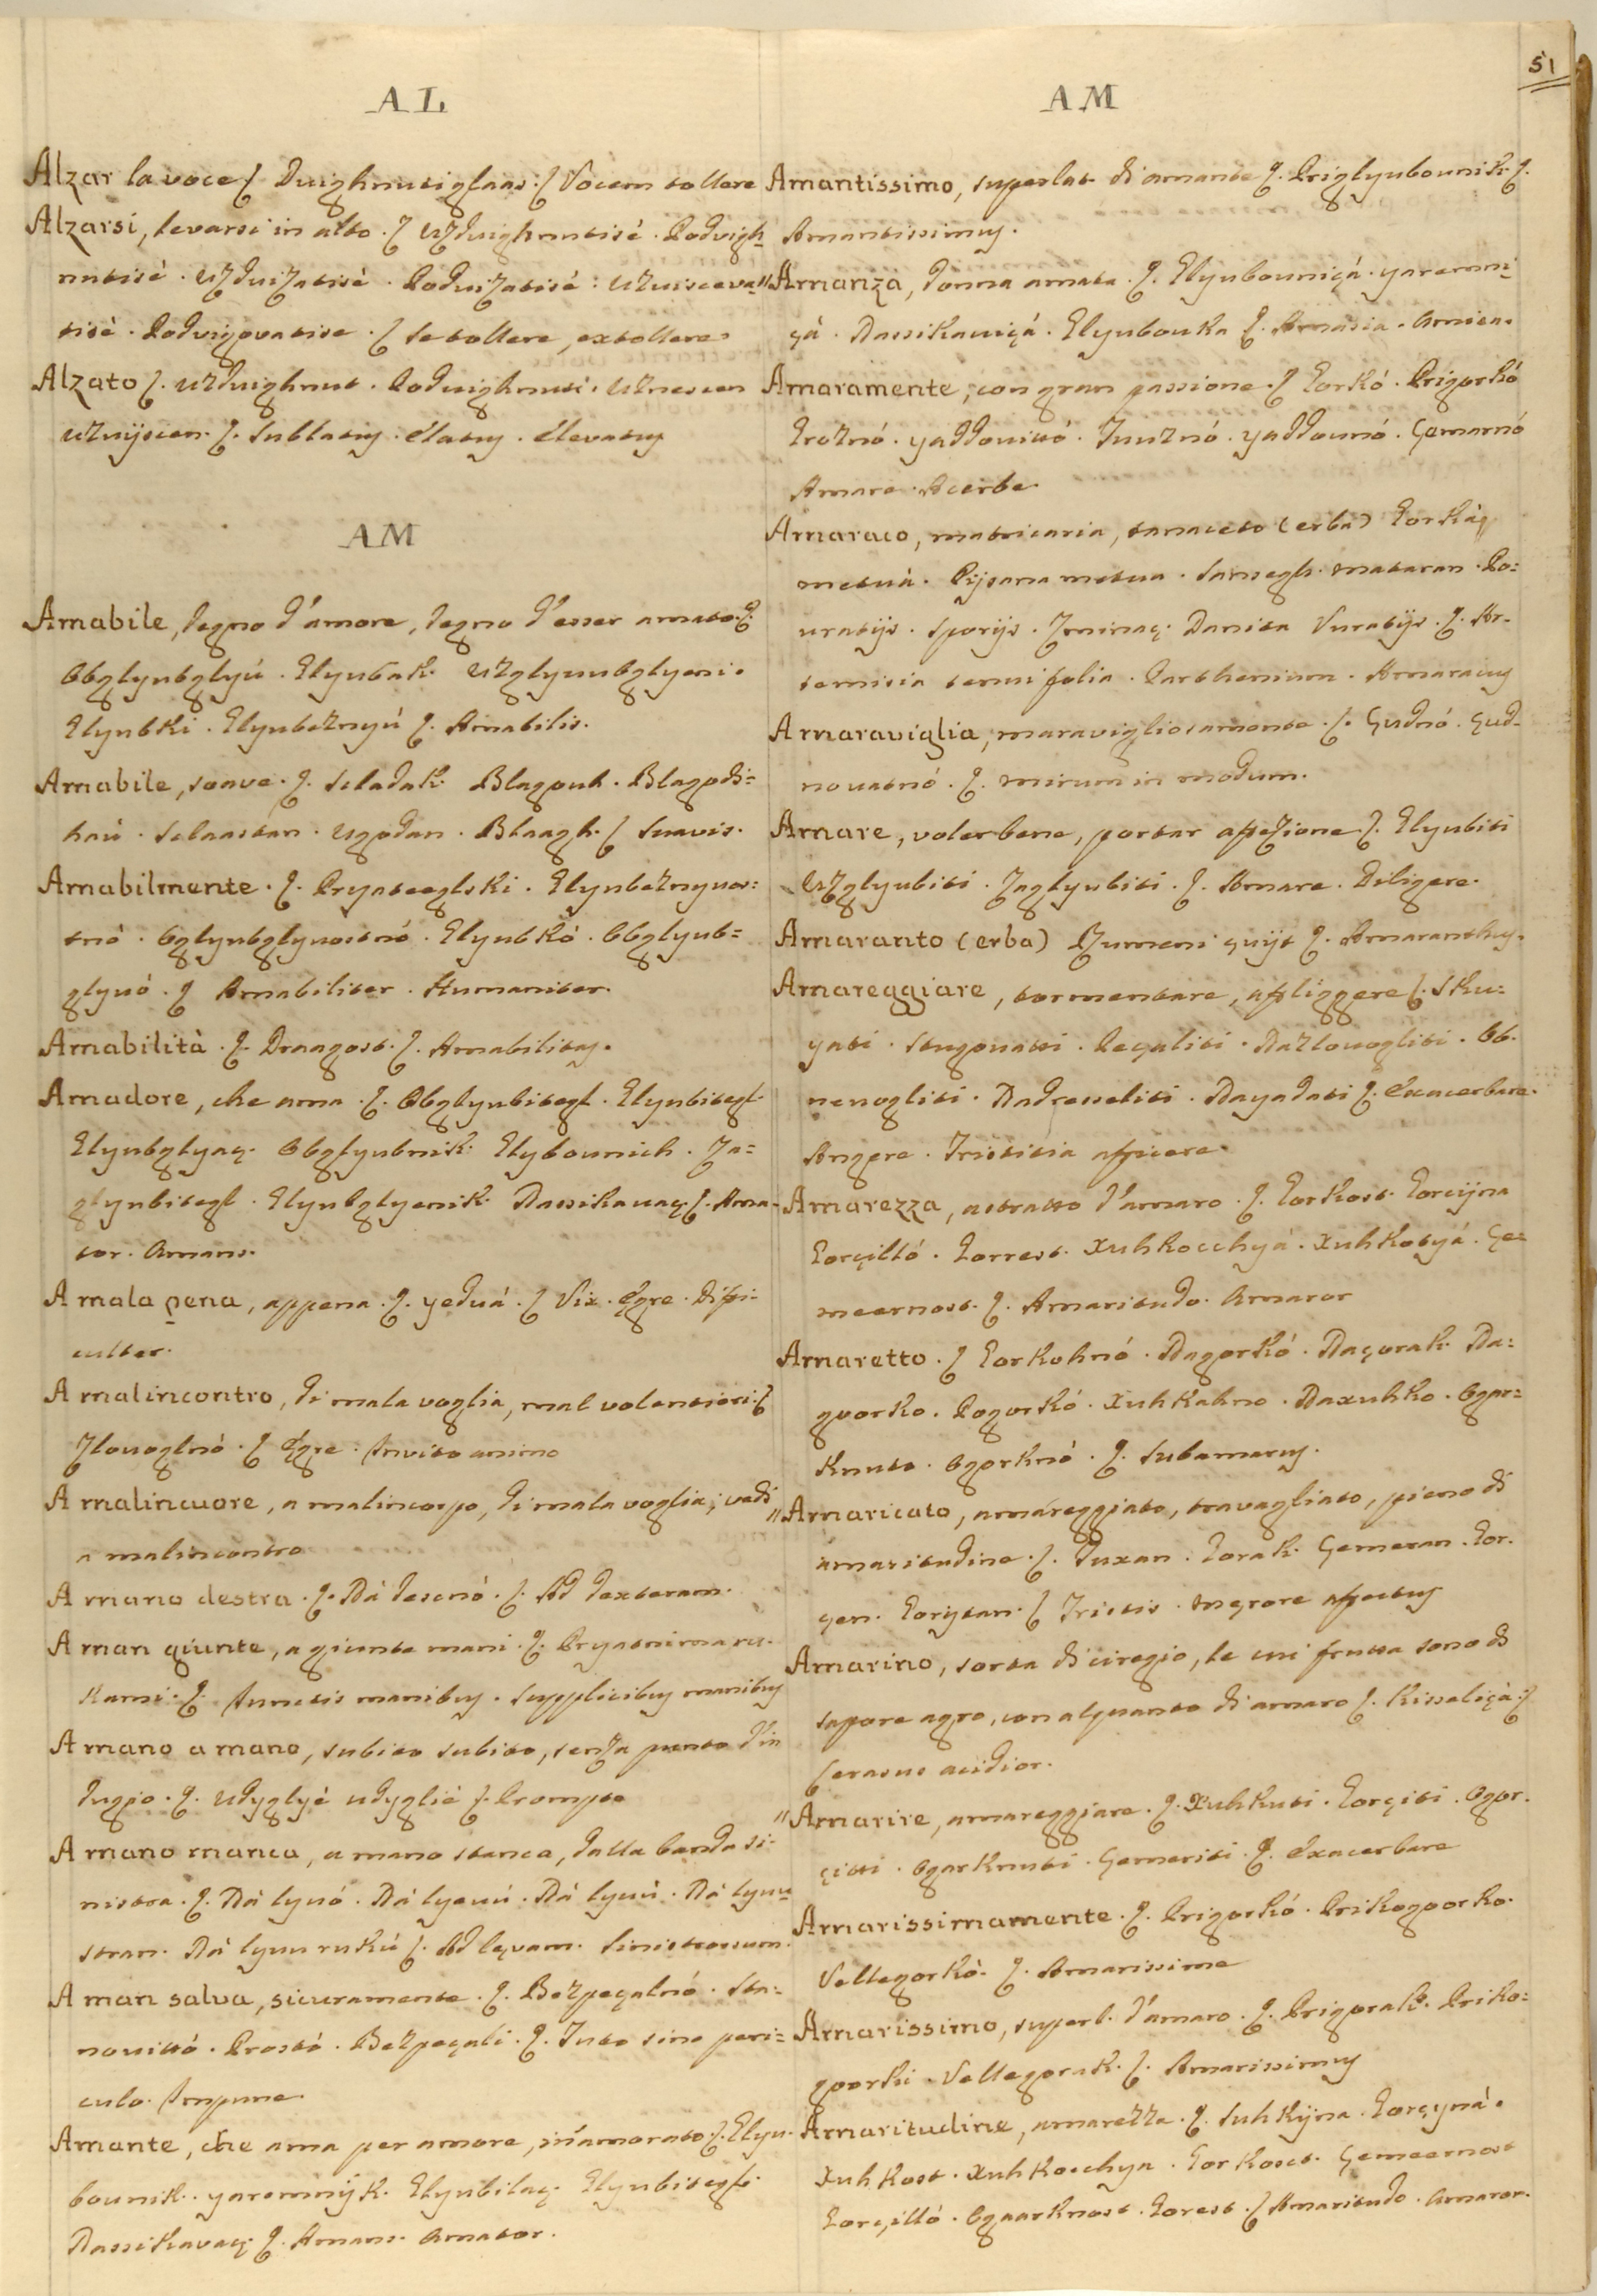 51
AL
Alzar la voce ſ Duighnutiglaas ſ Vocem tollere
Alzarsi, levarsi in alto. ſ Uzduighnutisè. Podvigh
nutisè. Uzduizatisè. Poduizatisè. Uzuisceva
tisè. Podvizovatise. ſ Se tollere, extollere.
Alzato ſ. Uzduighnut. Poduighnuti. Uznescen
Uznijscen. ſ. Sublatus. Elatus. Elevatus
AM
Amabile, degno d'amore, degno d'esser amato. ſ.
Obglyubglyú. Glyubak. Uzglyuubglyeni.
Glyubki. Glyubeznyú ſ. Amabilis.
Amabile, soave. ſ. Sladak. Blagouh. Blagodi=
haú. Slaastan. Ugodan. Blaagh. ſ Suavis.
Amabilmente. ſ. Pryateeglski. Glyubeznyuos=
tnó. Obglyubglyuostnó. Glyubkó. Obglyub=
glyuó. ſ Amabiliter. Humaniter.
Amabilità. ſ. Draagost. ſ. Amabilitas.
Amadore, che ama. ſ. Obglyubitegl. Glyubitegl.
Glyubglyaç. Obglyubnik. Glybounich. Za=
glyubitegl. Glyubglyenik. Nassikavaç. ſ. Ama-
tor. Amans.
A mala pena, appena. ſ. yeduá. ſ Vix. Ægre. Diffi-
culter.
A malincontro, di mala voglia, mal volentiori. ſ
Zlouoglnó. ſ Ægre. Invito animo
A malincuore, a malincorpo, di mala voglia; vedi
a malincontro
A mano destra. ſ. Ná desnó. ſ. Ad dexteram.
A man giunte, a giunte mani. ſ. Pryatnima ru-
kami. ſ. Iunctis manibus. Supplicibus manibus
A mano a mano, subito subito, senza punto d'in
dugio. ſ. Udyglyè udygliè ſ. Prompte
A mano manca, a mano stanca, dalla banda si-
nistra. ſ. Ná lyuó. Ná lyeuú. Ná lyuú. Ná lyuu
stran. Ná lyuu rukú ſ. Ad lævam. Sinistrorsum.
A man salva, sicuramente. ſ. Bezpeçalnó. Sta=
novittó. Prostó. Bezpeçali. ſ. Tuto sine peri=
culo. Impune.
Amante, che ama per amore, inamorato. ſ. Glyu-
bounik. yaromnijk. Glyubilaç. Glyubitegl.
Nassikavaç. ſ. Amans. Amator.
AM
Amantissimo, superlat. di amante ſ. Priglyubounik. ſ.
Amantissimus.
Amanza, donna amata. ſ. Glyubouniçá. yaremni
çá. Nassikauiçá. Glyubouka ſ. Amasia. Amica.
Amaramente, con gran passione. ſ Gorkó. Prigorkó
Groznó. yaddouitó. Iuuznó. yaddounó. Çemarnó
Amare. Acerbe.
Amaraco, matricaria, tanaceto (erba) Gorkáç
metuá. Pijsana metua. Sansegh. Mataran. Po=
uratijs. Sporijs. Zminaç. Danita Vuratijs. ſ. Ar-
temisia tenuifolia. Parthenium. Amaracus
A maraviglia, maravigliosamente. ſ. Çudnó. Çud-
nouatnó. ſ. Mirum in modum.
Amare, voler bene, portar affezione ſ. Glyubiti
Uzglyubiti. Zaglyubiti. ſ. Amare. Diligere.
Amaranto (erba) Rumeni çuijt ſ. Amaranthus.
Amareggiare, tormentare, affliggere ſ. Sku=
yati. Stugouatti. Peçaliti. Razlouogliti. Ob-
neuogliti. Nadresseliti. Nayadati ſ. Exacerbare.
Angere. Tristitia afficere.
Amarezza, astratto d'amaro. ſ. Gorkost. Gorcijna
Gorçilló. Gorrest. Xuhkocchyá. Xuhkotyá. Çe=
meernost. ſ. Amaritudo. Amaror
Amaretto. ſ Gorkohnó. Nagorkó. Naçorak. Na=
gvorko. Pogorkó. Xuhkahno. Naxuhko. Ogar=
knuto. Ogorknó. ſ. Subamarus.
Amaricato, amareggiato, travagliato, pieno di
amaritudine. ſ. Tuxan. Gorak. Çemeran. Gor-
çen. Gorijtan. ſ Tristis. Mœrore affectus
Amarino, sorta di ciregio, le cui frutta sono di
sapore agro, con alquanto di amaro ſ. Kissaliçà. ſ
Cerasus acidior.
Amarire, amareggiare. ſ. Xuhkuti. Gorçiti. Ogor-
çitti. Ogarknuti. Çemeriti. ſ. Exacerbare
Amarissimamente. ſ. Prigorkó. Prikogoorko.
Vellegorkó. ſ. Amarissime
Amarissimo, superl. d'amaro. ſ. Prigorak. Priko=
goorki. Vellegorak. ſ. Amarissimus
Amaritudine, amarezza. ſ. Suhkijna. Gorçyná.
Xuhkost. Xuhkocchya. Gorkost. Çemeernost
Gorçilló. Ogaarknost. Gorest. ſ Amaritudo. Amaror.